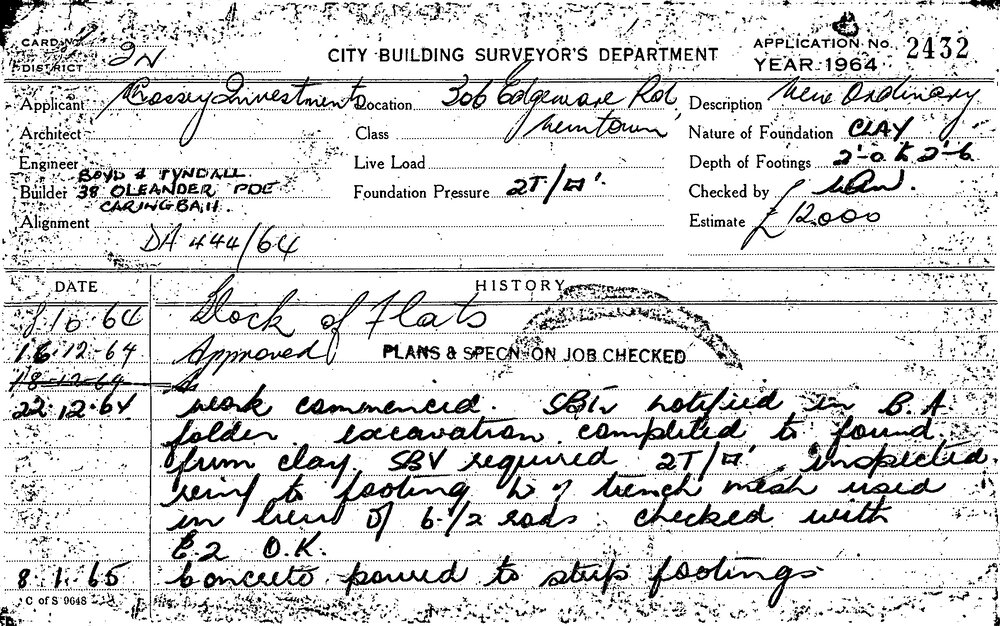 CARD No.
DISTRICT 2N
CITY BUILDING SURVEYOR'S DEPARTMENT
APPLICATION No. 2432
YEAR 1964
Applicant Cossey Investments Location 306 Edgeware Rd, Description New Ordinary
Architect Class Newtown Nature of Foundation CLAY
Engineer Live Load Depth of Footings 2'-0 to 2'-6
BOYD & TYNDALL
Builder 38 OLEANDER PDE Foundation Pressure 2T/□'. Checked by
CARINGBAH.
Alignment Estimate £12000
DA 444/64
DATE HISTORY
10.64 Block of Flats
16.12-64 Approved PLANS & SPECN ON JOB CHECKED
18-12-64
22.12.64 work commenced. notified in B.A
folder. excavation completed to found.
firm clay, SBV required 2T/□' inspected.
reinf to footing trench mesh used
in lieu of 6-1/2 rods checked with
E.2 O.K.
8.1.65 Concrete poured to strip footings
C of S 9648